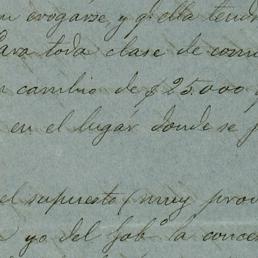 erogarse, y q. ella tend
Para toda clase de com
cambio de $25.000
en el lugar donde se
el supuesto (muy pro
yo del Gob.º a conce